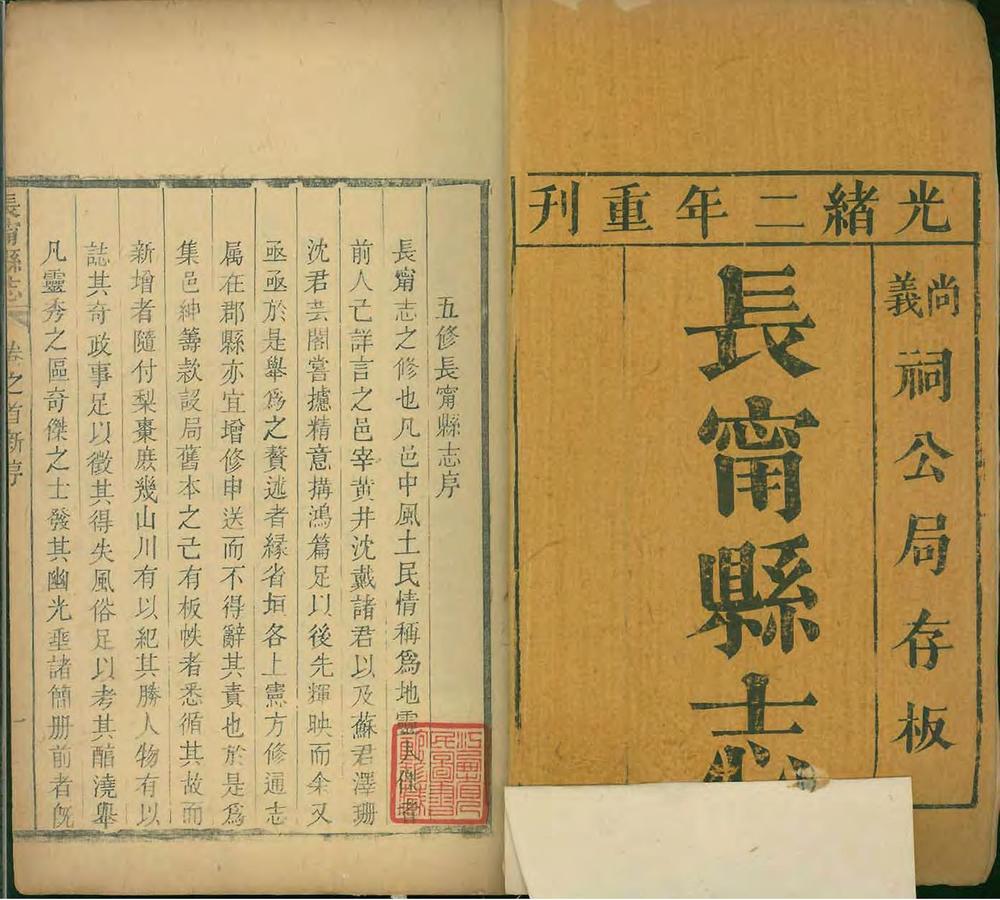 光緒二年重刊
尚義祠公局存板
長甯縣志
五修長甯縣志序
長甯志之修也凡邑中風土民情稱為地靈人傑者
前人已詳言之邑宰黄井沈戴諸君以及蘇君澤珊
沈君芸閣嘗攄精意搆鴻篇足以後先輝映而余又
亟亟於是舉為之贅述者緣省垣各上憲方修通志
属在郡縣亦宜增修申送而不得辭其責也於是為
集邑紳籌款設局舊本之已有板帙者悉循其故而
新增者隨付梨棗庶幾山川有以紀其勝人物有以
誌其奇政事足以徵其得失風俗足以考其醕澆舉
凡靈秀之區奇傑之士發其幽光垂諸簡册前者旣
長甯縣志 卷之首新序 一